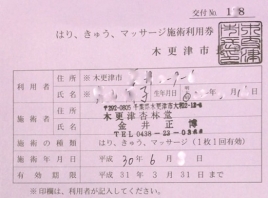 交付No. 18
はり、きゅう、マッサージ施術利用券
木更津市
利用者 住所 ※木更津市
氏名 生年月日
施術者 住所 〒292-0805 千葉県木更津市大和2-12-6
木更津杏林堂
氏名 金井正博
TEL 0438-23-0
施術の種類 はり、きゅう、マッサージ(1枚1回有効)
施術年月日 平成 30年 6月 日
有効期限 平成 31年 3月 31日まで
※印欄は、利用者が記入してください。